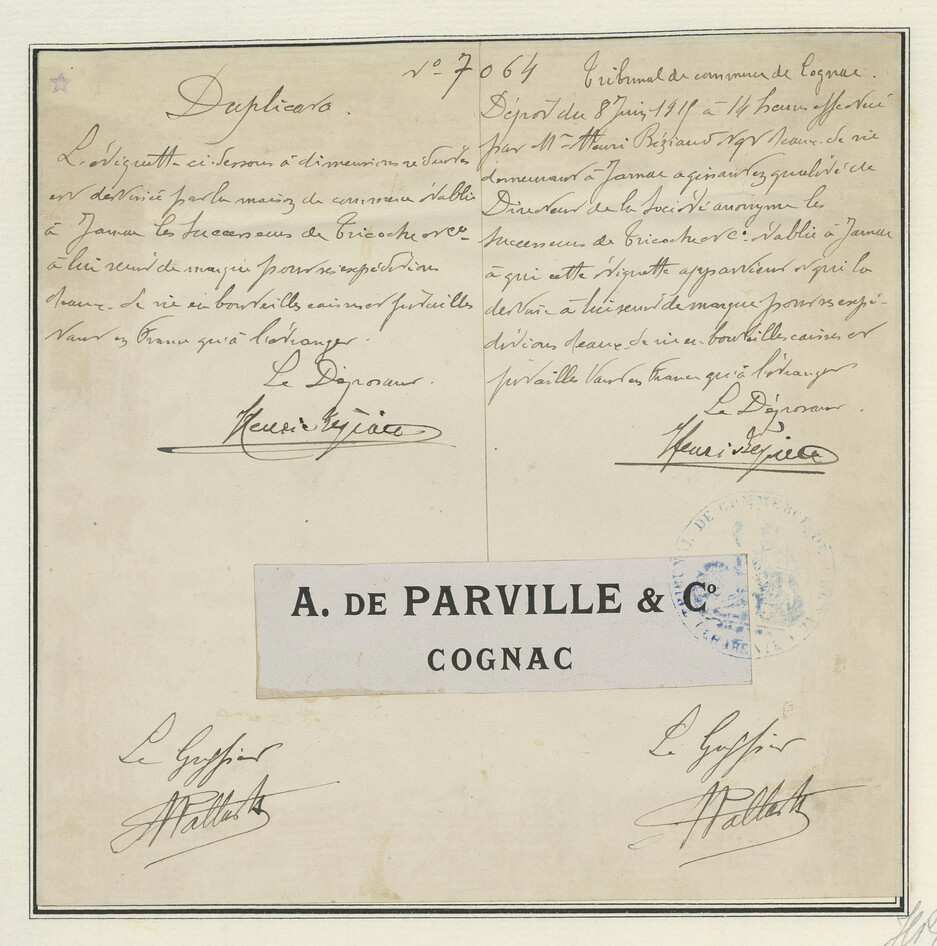 No 7064
Duplicata.
L'étiquette ci-dessous à dimensions réduites
est destinée par la maison de commerce établie
à Jarnac les successeurs de Tricoche et Co
à lui servir de marque pour ses expéditions
d'eaux-de-vie en bouteilles caisses et futailles
tant en France qu'à l'étranger.
Le Déposant.
Henri
Tribunal de commerce de Cognac.
Dépôt du 8 Juin 1915 à 14 heures effectué
par Mr Henri Négt d'eaux-de-vie
demeurant à Jarnac agissant en qualité de
Directeur de la Société anonyme les
successeurs de Tricoche et Co établie à Jarnac
à qui cette étiquette appartient et qui la
destine à lui servir de marque pour ses expé-
ditions d'eaux-de-vie en bouteilles caisses et
futailles tant en France qu'à l'étranger
Le Déposant.
Henri
TRIBUNAL DE COMMERCE DE
CHARENTE
A. DE PARVILLE & Co
COGNAC
Le Greffier
Le Greffier